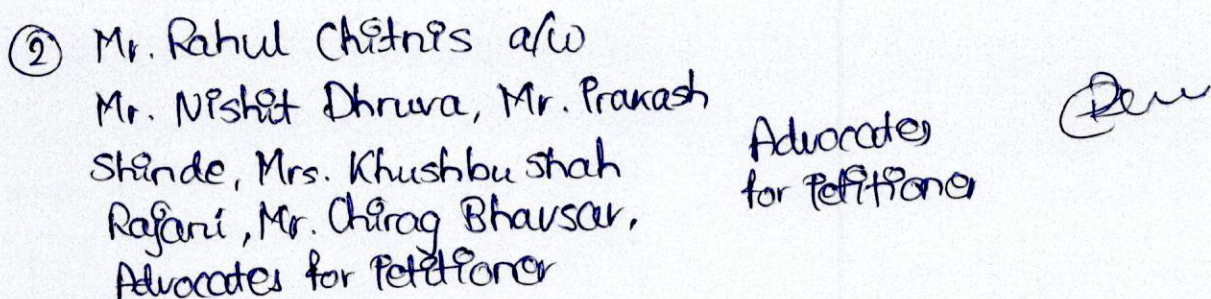 ② Mr. Rahul Chitnis a/w
Mr. Nishit Dhruva, Mr. Prakash
Shinde, Mrs. Khushbu Shah
Rajani, Mr. Chirag Bhavsar,
Advocates for Petitioner
Advocates
for Petitioner